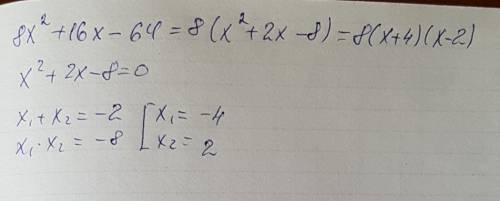 8x² + 16x - 64 = 8 (x² + 2x - 8) = 8(x+4)(x-2)
x² + 2x - 8 = 0
x₁ + x₂ = -2 [ x₁ = -4
x₁ · x₂ = -8 [ x₂ = 2